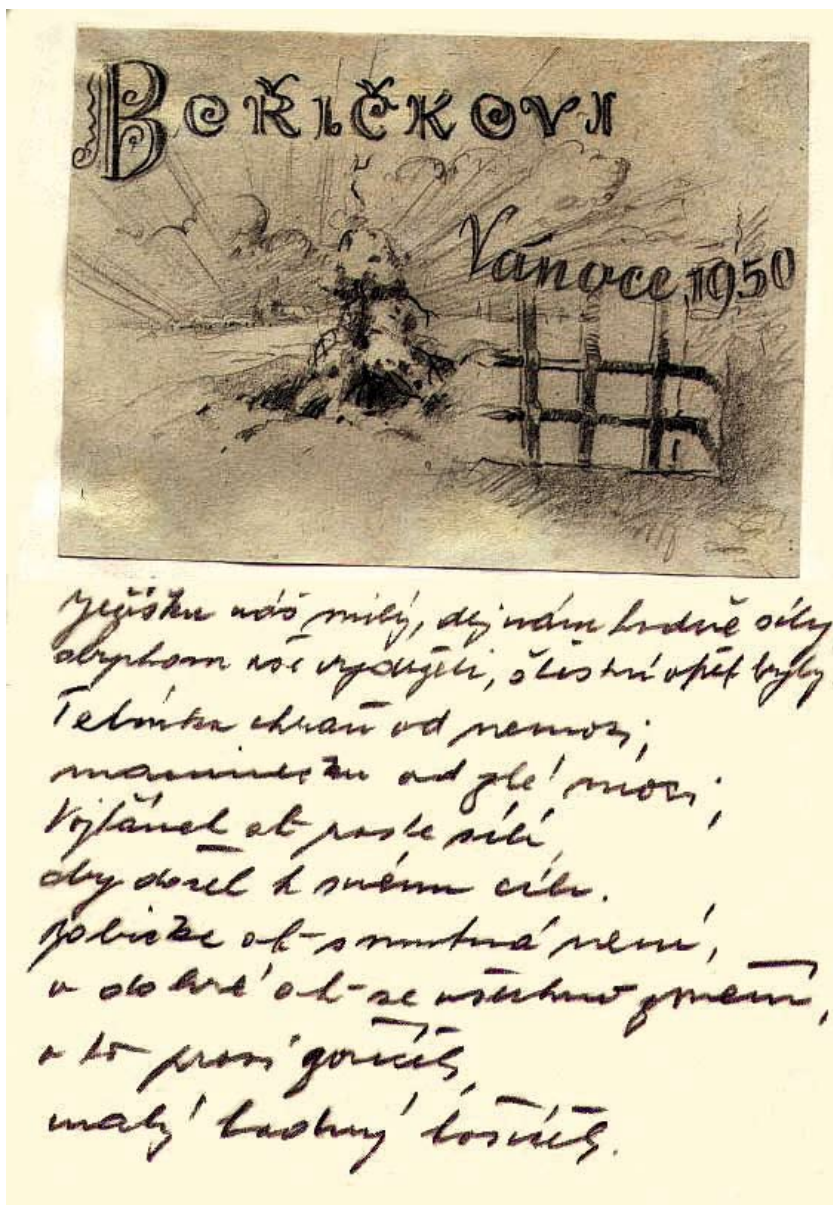 Bořičkovi
Vánoce 1950
Ježíšku náš milý, dej nám hodně síly
abychom vše vydrželi, šťastní opět byli
Tatínka chraň od nemoci,
maminečku od zlé moci,
Vojtánek ať roste sílí,
aby došel k svému cíli.
ať smutná není,
v dobré ať se všechno změní,
o to prosí
malý hodný